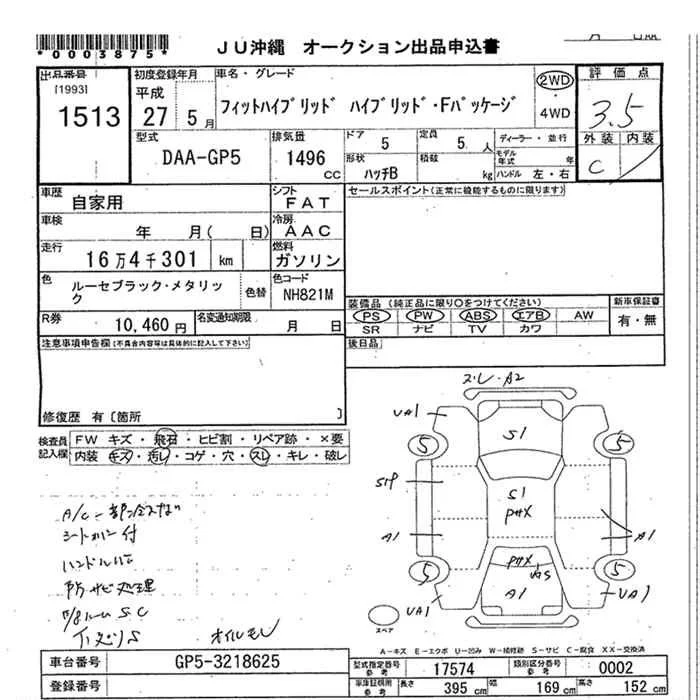 *0003875*
JU沖縄 オークション出品申込書
出品番号 初度登録年月 車名・グレード 2WD 評価点
[1993] 平成
1513 27 5月 フィットハイブリッド ハイブリッド・Fパッケージ 4WD 3.5
型式 排気量 ドア 定員 ディーラー・並行 外装 内装
DAA-GP5 1496 CC 5 5人 モデル年式 年 C
形状 ハッチB 積載 kg ハンドル 左・右
車歴 自家用 シフト FAT セールスポイント(正常に機能するものに限ります)
車検 年 月( 日) 冷房 AAC
走行 16万4千301 km 燃料 ガソリン
色 ルーセブラック・メタリック 色替 色コード NH821M
装備品(純正品に限り○をつけてください) 新車保証書
R券 10,460円 名変通知期限 月 日
PS PW ABS エアB AW 有・無
SR ナビ TV カワ
注意事項申告欄(不具合内容等は具体的に記入して下さい) 後日品
修復歴 有〔箇所 〕
検査員記入欄 FW キズ・飛石・ヒビ割・リペア跡・×要
内装 キズ・汚レ・コゲ・穴・スレ・キレ・破レ
スレ・A2
UA1
S1
5 5
S1P
S1
PHX
A1 A1
PHX
5 5
A1
UA1 UA1
スペア
A/C
シートカバー付
防サビ処理
下廻りS オイルモレ
A-キズ E-エクボ U-凹み W-補修跡 S-サビ C-腐食 XX-交換済
車台番号 GP5-3218625
型式指定番号 参考 17574 類別区分番号 参考 0002
登録番号
車庫証明用 参考 長さ 395 cm 幅 169 cm 高さ 152 cm